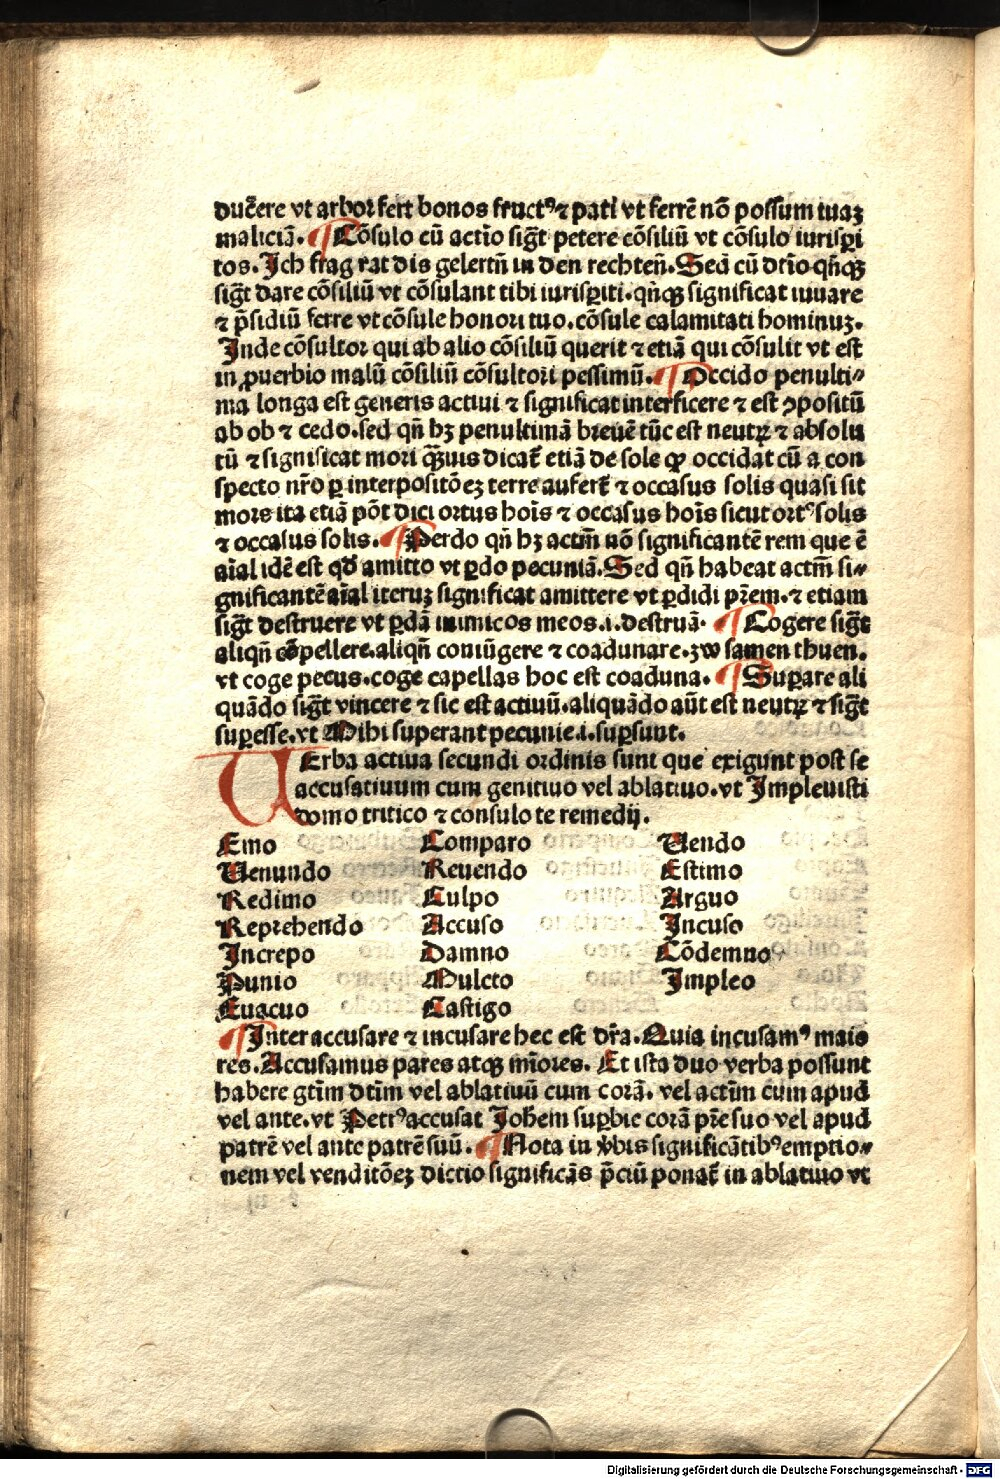 duc̄ere vt arbor fert bonos fructꝰ ⁊ pati vt ferrē nō possum tuaꝫ
maliciā. ¶ Cōsulo cū actīo sigt̄ petere cōsiliū vt cōsulo iurisꝑi
tos. Ich frag rat dis gelertn̄ in den rechten̄. Secā cū dtīo qn̄qꝫ
sigt̄ dare cōsiliū vt cōsulant tibi iurisꝑiti. qn̄qꝫ significat iuuare
⁊ p̄sidiū ferre vt cōsule honori tuo. cōsule calamitati hominuꝫ.
Inde cōsultor qui ab alio cōsiliū querit ⁊ etiā qui cōsulit vt est
in ꝓuerbio malū cōsiliū cōsultori pessimū. ¶ Occido penulti⸗
ma longa est generis actiui ⁊ significat interficere ⁊ est ꝯpositū
ab ob ⁊ cedo. sed qn̄ hꝫ penultimā breuē tūc est neutꝝ ⁊ absolu
tū ⁊ significat mori qꝫuis dicat̄ etiā de sole ꝙ occidat cū a con
specto nr̄o ꝑ interpositōeꝫ terre aufert̄ ⁊ occasus solis quasi sit
mors ita etiā pōt dici ortus hoīs ⁊ occasus hoīs sicut ortꝰ solis
⁊ occasus solis. ¶ Perdo qn̄ hꝫ actīm nō significantē rem que ē
aīal idē est qd̄ amitto vt ꝑdo pecuniā. Sed qn̄ habeat actīm si⸗
gnificantē aīal iteruꝫ significat amittere vt ꝑdidi pr̄em. ⁊ etiam
sigt̄ destruere vt ꝑdā inimicos meos .i. destruā. ¶ Cogere sigt̄
aliqn̄ cōpellere. aliqn̄ coniūgere ⁊ coadunare. zw samen thuen.
vt coge pecus. coge capellas hoc est coaduna. ¶ Suꝑare ali
quādo sigt̄ vincere ⁊ sic est actiuū. aliquādo aūt est neutꝝ ⁊ sigt̄
suꝑesse. vt Mihi superant pecunie .i. suꝑsunt.
UErba actiua secundi ordinis sunt que exigunt post se
accusatiuum cum genitiuo vel ablatiuo. vt Impleuisti
domo tritico ⁊ consulo te remedij.
Emo Comparo Uendo
Uenundo Reuendo Estimo
Redimo Culpo Arguo
Reprehendo Accuso Incuso
Increpo Damno Cōdemno
Punio Mulcto Impleo
Euacuo Castigo
¶ Inter accusare ⁊ incusare hec est dr̄a. Quia incusamꝰ maio
res. Accusamus pares atqꝫ mīores. Et ista duo verba possunt
habere gtīm dtīm vel ablatiuū cum corā. vel actīm cum apud
vel ante. vt Petrꝰ accusat Johēm suꝑbie corā pr̄e suo vel apud
patrē vel ante patrē suū. ¶ Nota in v̄bis significātibꝰ emptio⸗
nem vel venditōeꝫ dictio significās p̄ciū ponat̄ in ablatiuo vt
Digitalisierung gefördert durch die Deutsche Forschungsgemeinschaft - DFG